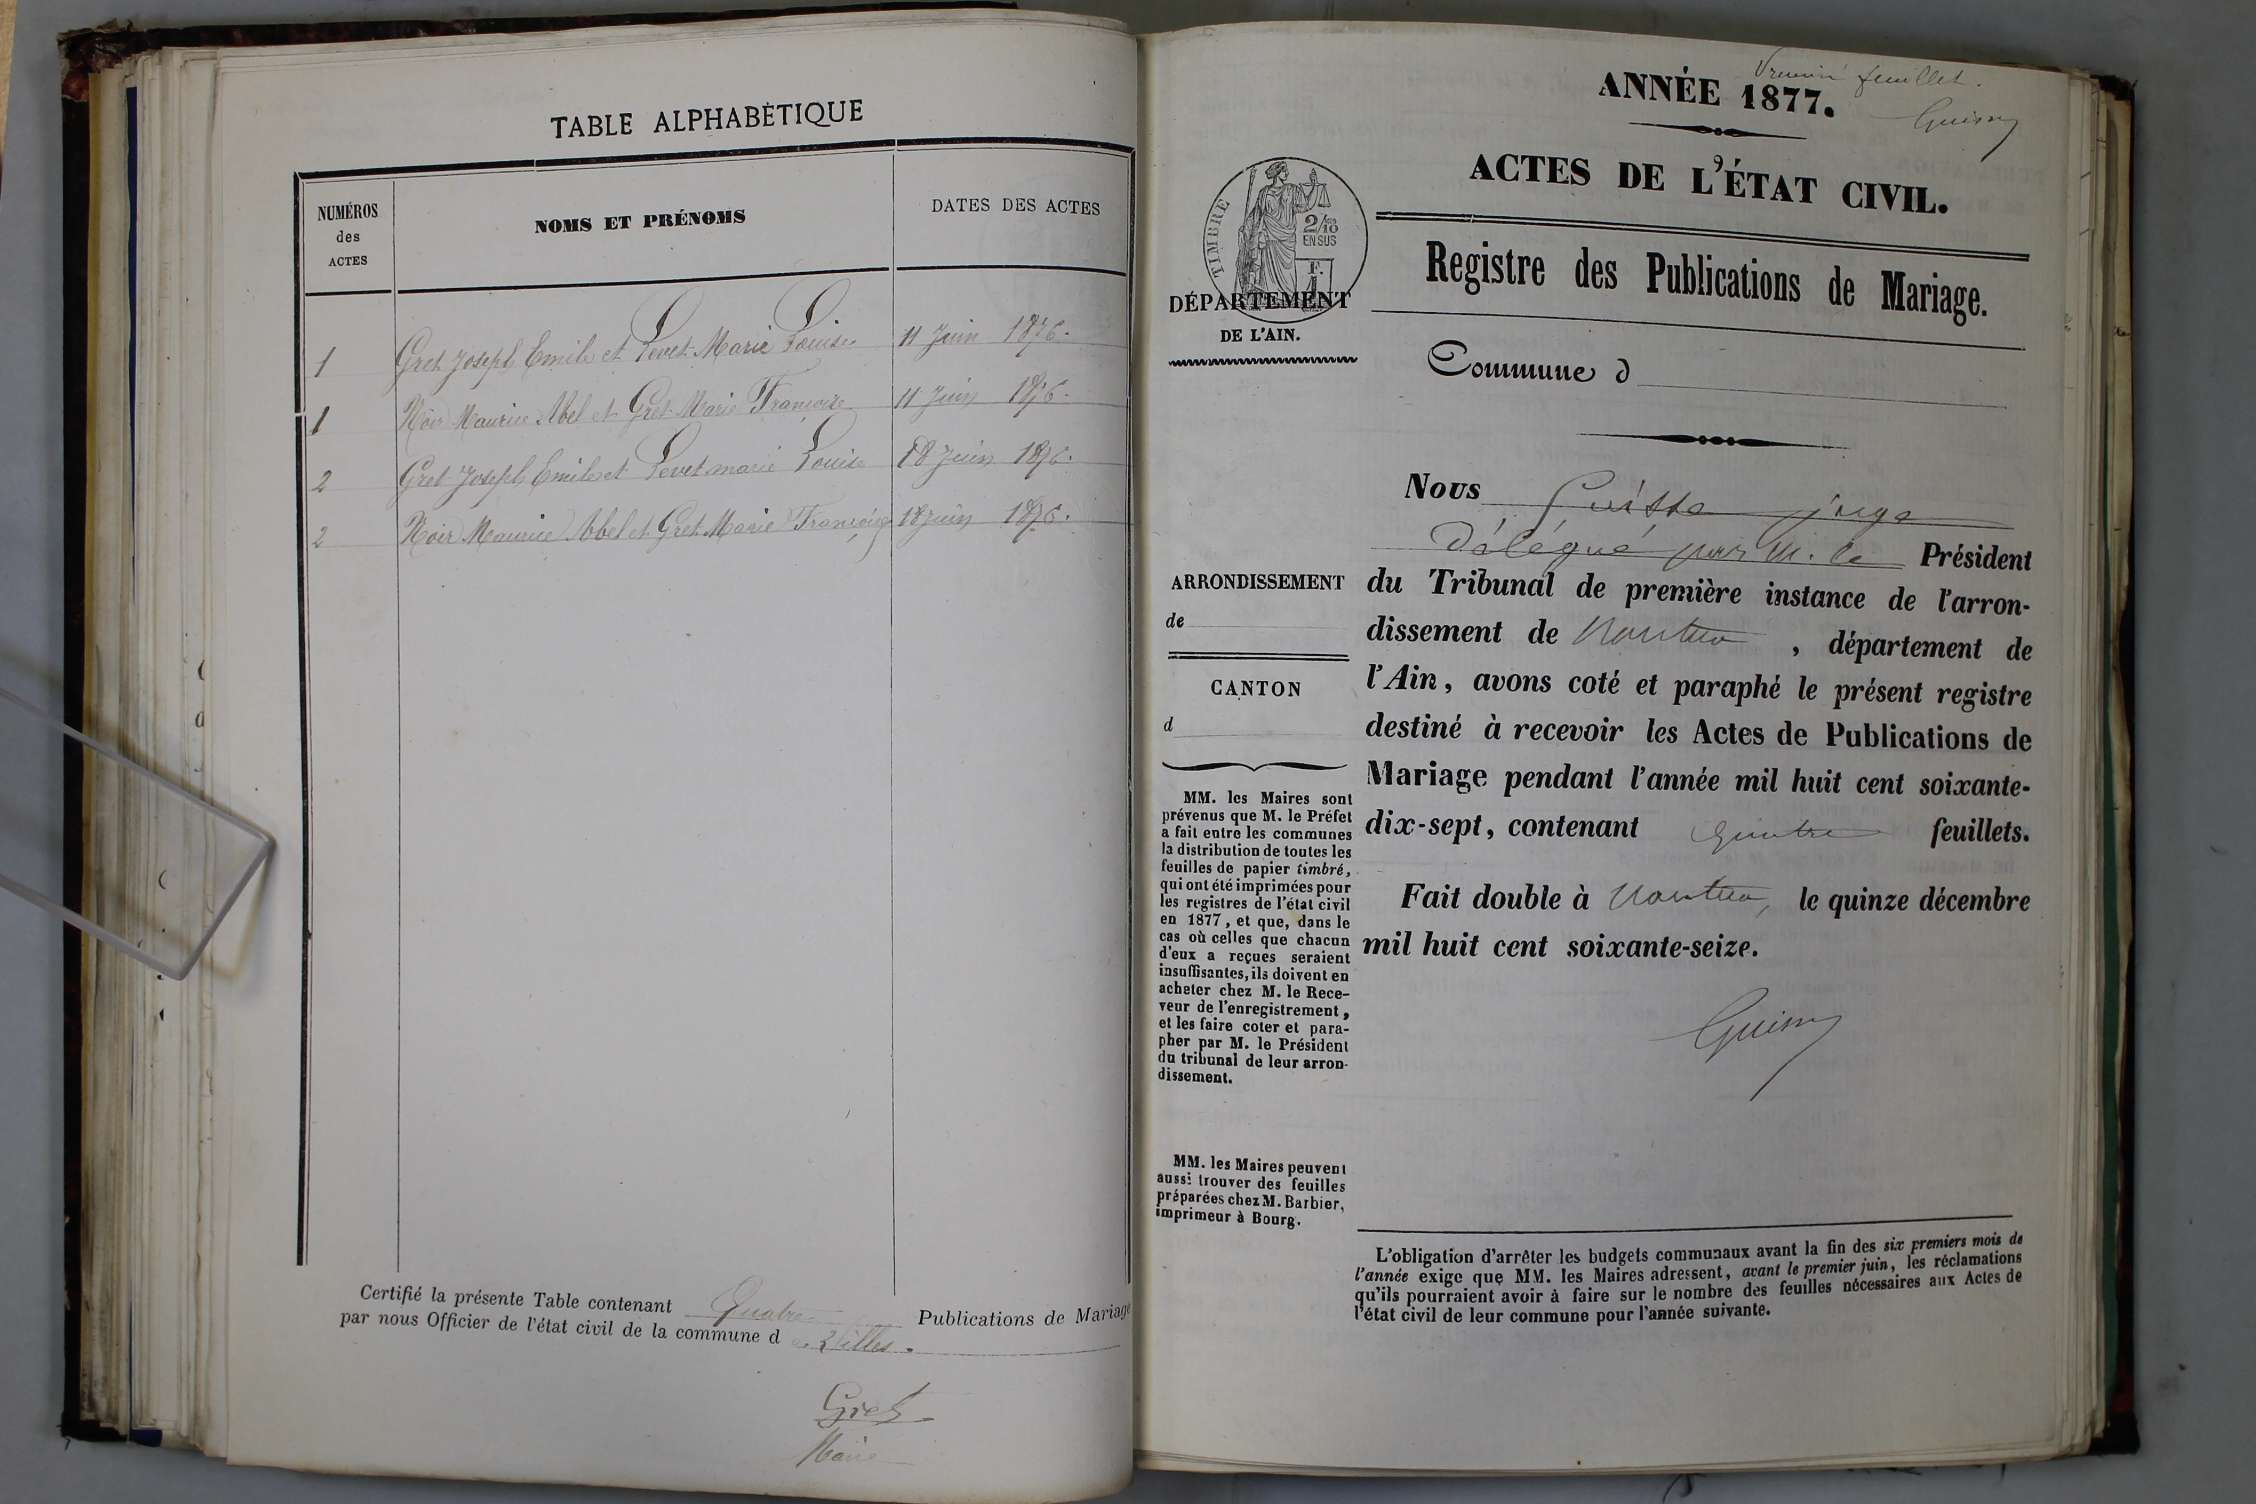 TABLE ALPHABÉTIQUE
NUMÉROS
des
ACTES
NOMS ET PRÉNOMS
DATES DES ACTES
1 Gret Joseph Emile et Levet Marie Louise 11 Juin 1876.
1 Noir Maurice Abel et Gret Marie Françoise 11 Juin 1876.
2 Gret Joseph Emile et Levet marie Louise 18 Juin 1876.
2 Noir Maurice Abel et Gret Marie Françoise 18 Juin 1876.
Certifié la présente Table contenant Quatre Publications de Mariage
par nous Officier de l'état civil de la commune d
Gret
Maire
feuillet.
ANNÉE 1877.
ACTES DE L'ÉTAT CIVIL.
TIMBRE
2/10
EN SUS
F.
1
DÉPARTEMENT
DE L'AIN.
Registre des Publications de Mariage.
Commune d
ARRONDISSEMENT
de
CANTON
d
MM. les Maires sont
prévenus que M. le Préfet
a fait entre les communes
la distribution de toutes les
feuilles de papier timbré,
qui ont été imprimées pour
les registres de l'état civil
en 1877, et que, dans le
cas où celles que chacun
d'eux a reçues seraient
insuffisantes, ils doivent en
acheter chez M. le Rece-
veur de l'enregistrement,
et les faire coter et para-
pher par M. le Président
du tribunal de leur arron-
dissement.
MM. les Maires peuvent
aussi trouver des feuilles
préparées chez M. Barbier,
imprimeur à Bourg.
Nous juge
Délégué par M. le Président
du Tribunal de première instance de l'arron-
dissement de Nantua, département de
l'Ain, avons coté et paraphé le présent registre
destiné à recevoir les Actes de Publications de
Mariage pendant l'année mil huit cent soixante-
dix-sept, contenant quatre feuillets.
Fait double à Nantua, le quinze décembre
mil huit cent soixante-seize.
L'obligation d'arrêter les budgets communaux avant la fin des six premiers mois de
l'année exige que MM. les Maires adressent, avant le premier juin, les réclamations
qu'ils pourraient avoir à faire sur le nombre des feuilles nécessaires aux Actes de
l'état civil de leur commune pour l'année suivante.